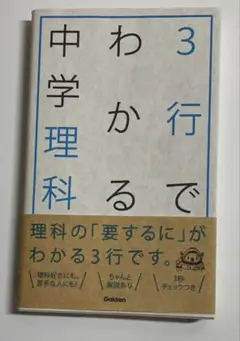 3行で
わかる
中学理科
理科の「要するに」が
わかる3行です。
理科好きにも、
苦手な人にも!
ちゃんと
解説あり
1秒
チェックつき
Gakken